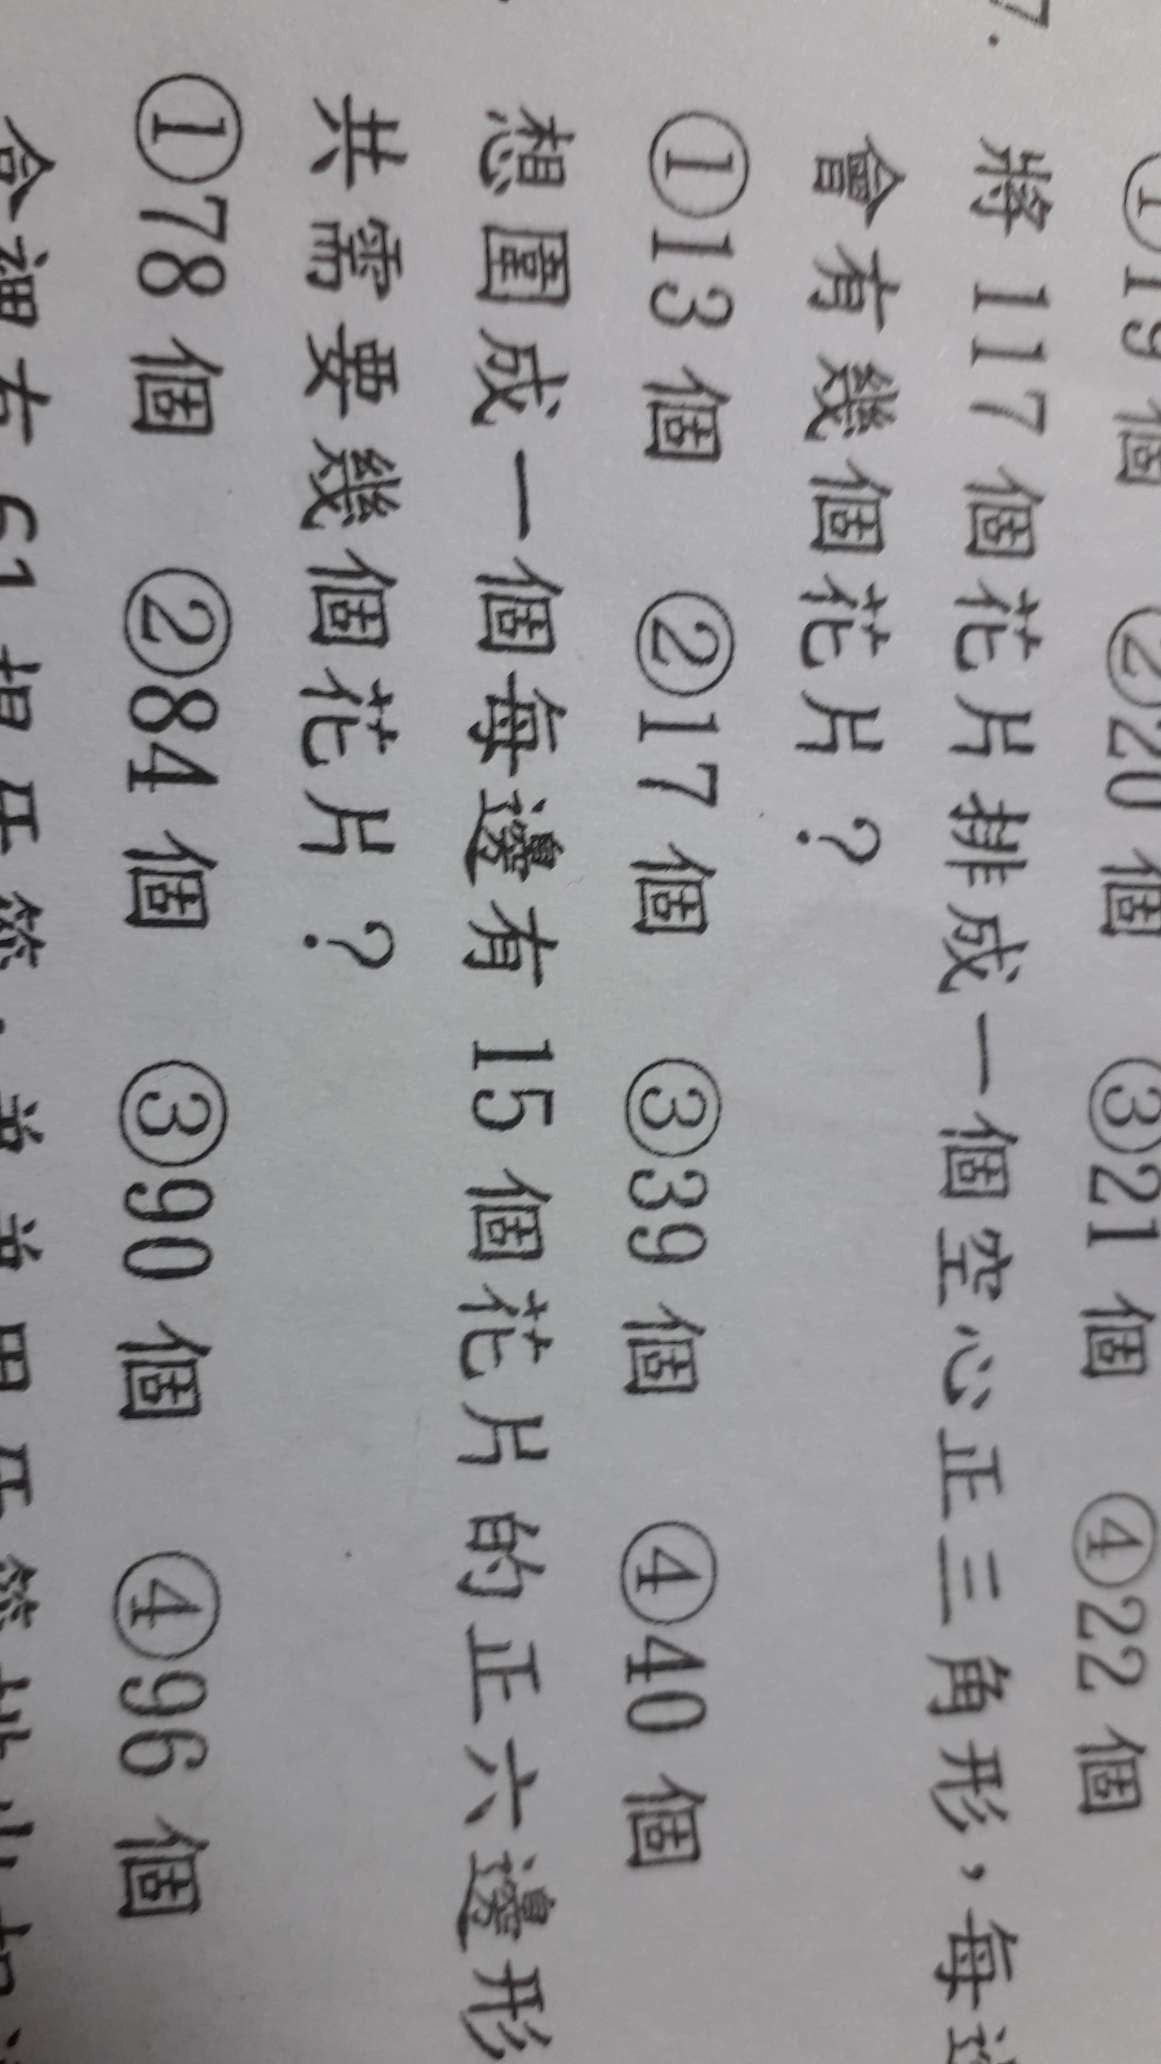 ①19個 ②20個 ③21個 ④22個
7.
將117個花片排成一個空心正三角形，每邊
會有幾個花片？
①13個 ②17個 ③39個 ④40個
想圍成一個每邊有15個花片的正六邊形
共需要幾個花片？
①78個 ②84個 ③90個 ④96個
盒裡有61根牙籤，